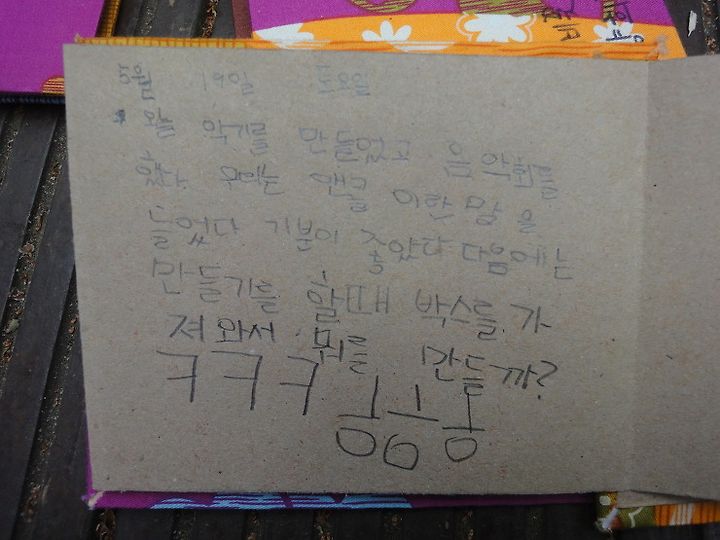 5월 19일 토요일
악기를 만들었고 음악회를
했다. 우리는 앵콜 이란 말을
들었다 기분이 좋았다 다음에는
만들기를 할때 박스를 가
져와서 뭐를 만들까?
ㅋㅋㅋ